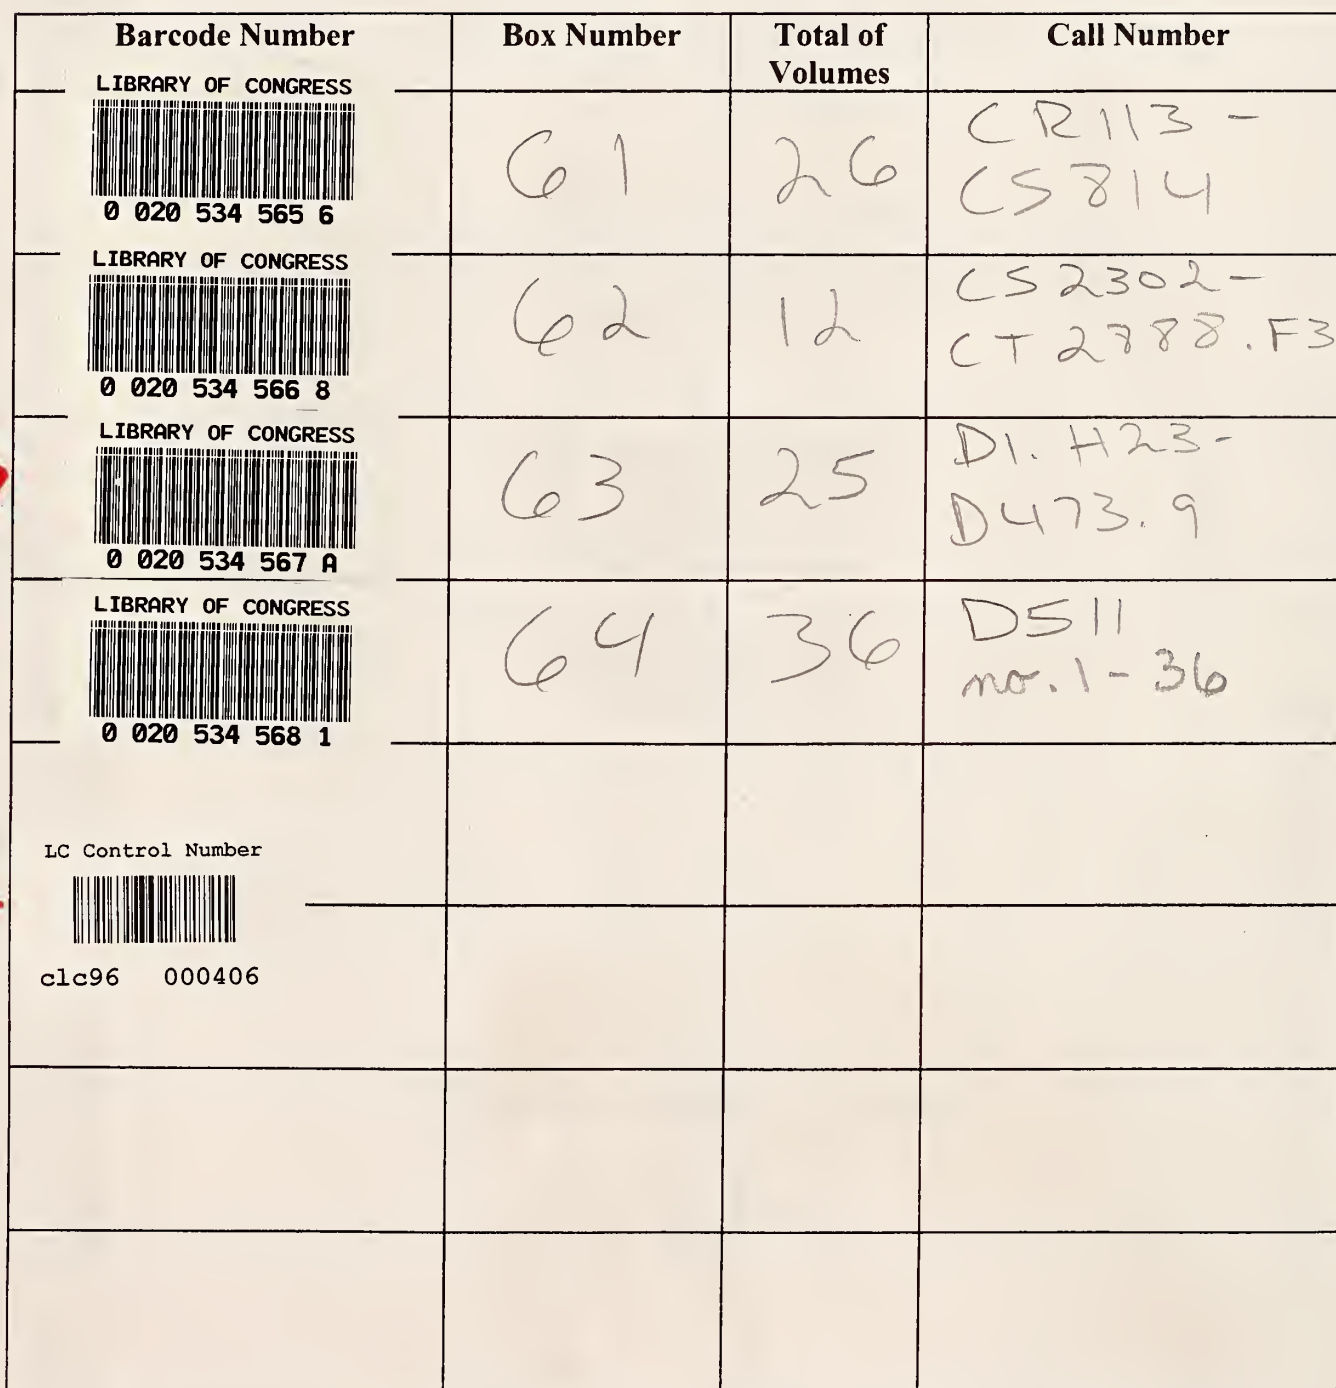 Barcode Number Box Number Total of Volumes Call Number
LIBRARY OF CONGRESS
0 020 534 565 6
61 26 CR113 -
CS814
LIBRARY OF CONGRESS
0 020 534 566 8
62 12 CS2302-
CT2788.F3
LIBRARY OF CONGRESS
0 020 534 567 A
63 25 D1. H23-
D473.9
LIBRARY OF CONGRESS
0 020 534 568 1
64 36 D511
no. 1 - 36
LC Control Number
clc96 000406